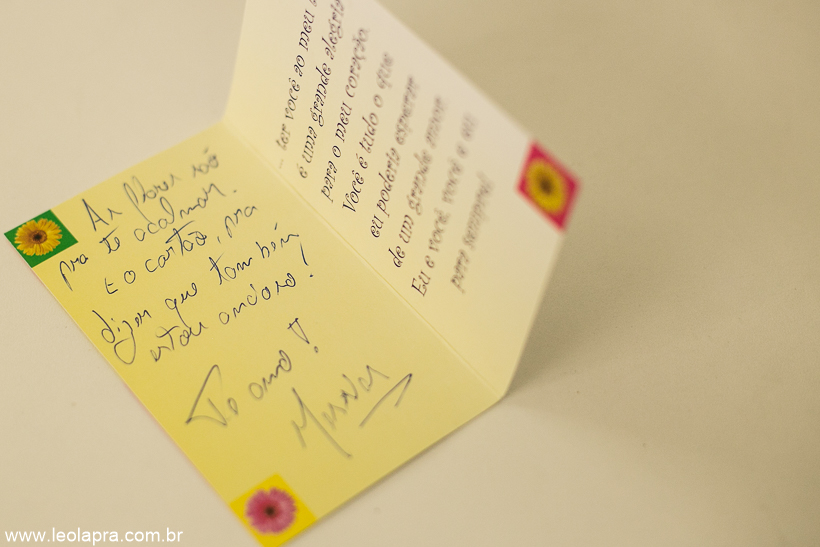 As flores são
pra te acalmar.
E o cartão, pra
dizer que também
estou ansioso!
Te amo!
- ter você ao meu
é uma grande alegria
para o meu coração.
Você é tudo o que
eu poderia esperar
de um grande amor.
Eu e você, você e eu
para sempre!
www.leolapra.com.br